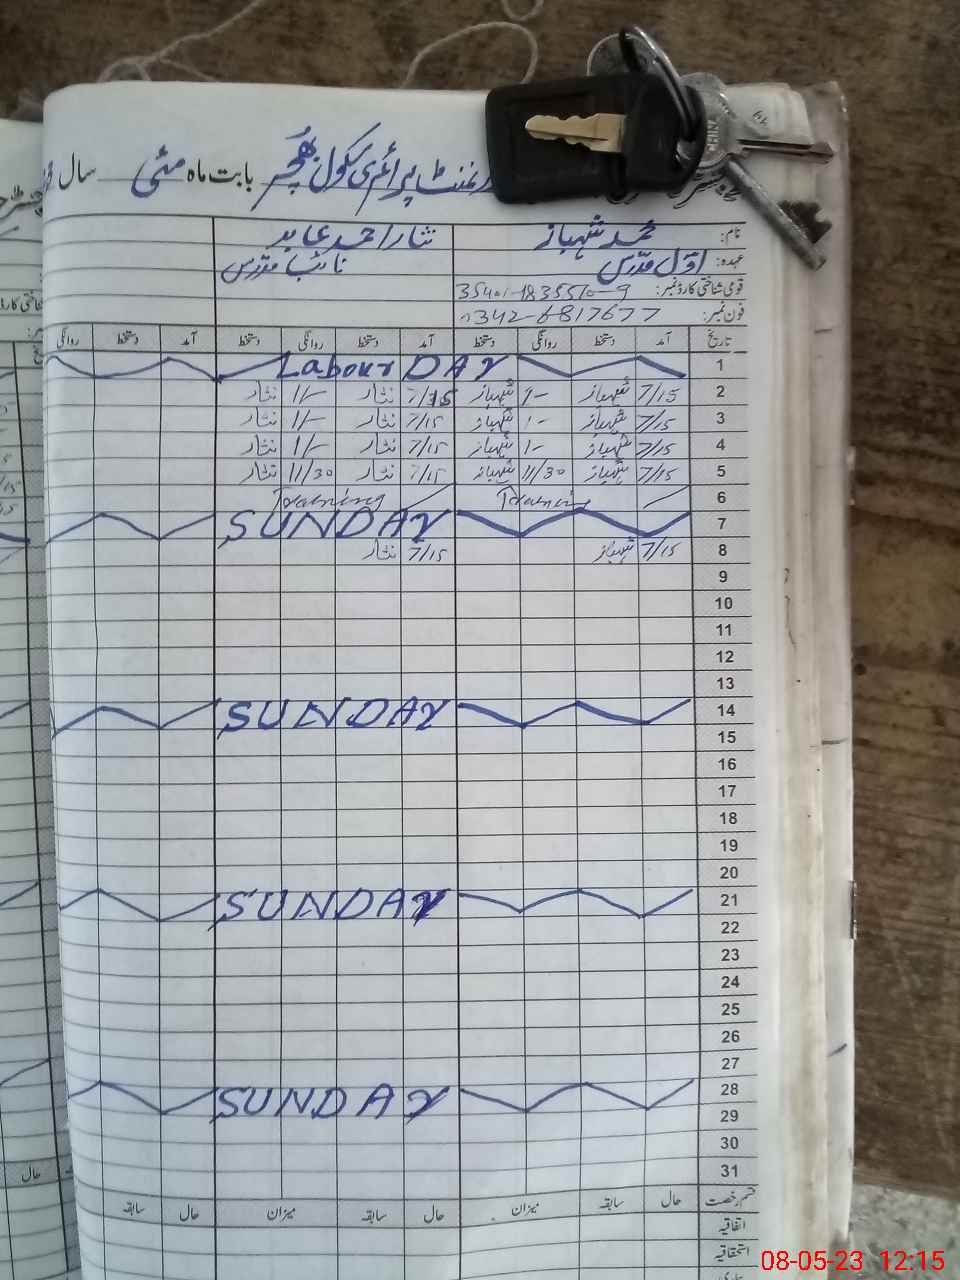 گورنمنٹ پرائمری سکول بھچر بابت ماہ مئی سال
نام: محمد شہباز نثار احمد عابد
عہدہ: اول مدرس نائب مدرس
قومی شناختی کارڈ نمبر: 35401-1835510-9
فون نمبر: 0342-6817677
تاریخ آمد دستخط روانگی دستخط آمد دستخط روانگی دستخط آمد دستخط روانگی
1 Labour DAY
2 7/15 شہباز 1- شہباز 7/15 نثار 1/- نثار
3 7/15 شہباز 1- شہباز 7/15 نثار 1/- نثار
4 7/15 شہباز 1- شہباز 7/15 نثار 1/- نثار
5 7/15 شہباز 11/30 شہباز 7/15 نثار 11/30 نثار
6 Training Training
7 SUNDAY
8 7/15 شہباز 7/15 نثار
9
10
11
12
13
14 SUNDAY
15
16
17
18
19
20
21 SUNDAY
22
23
24
25
26
27
28 SUNDAY
29
30
31
قسم رخصت حال سابقہ میزان حال سابقہ میزان حال سابقہ
اتفاقیہ
استحقاقیہ
حال
08-05-23 12:15